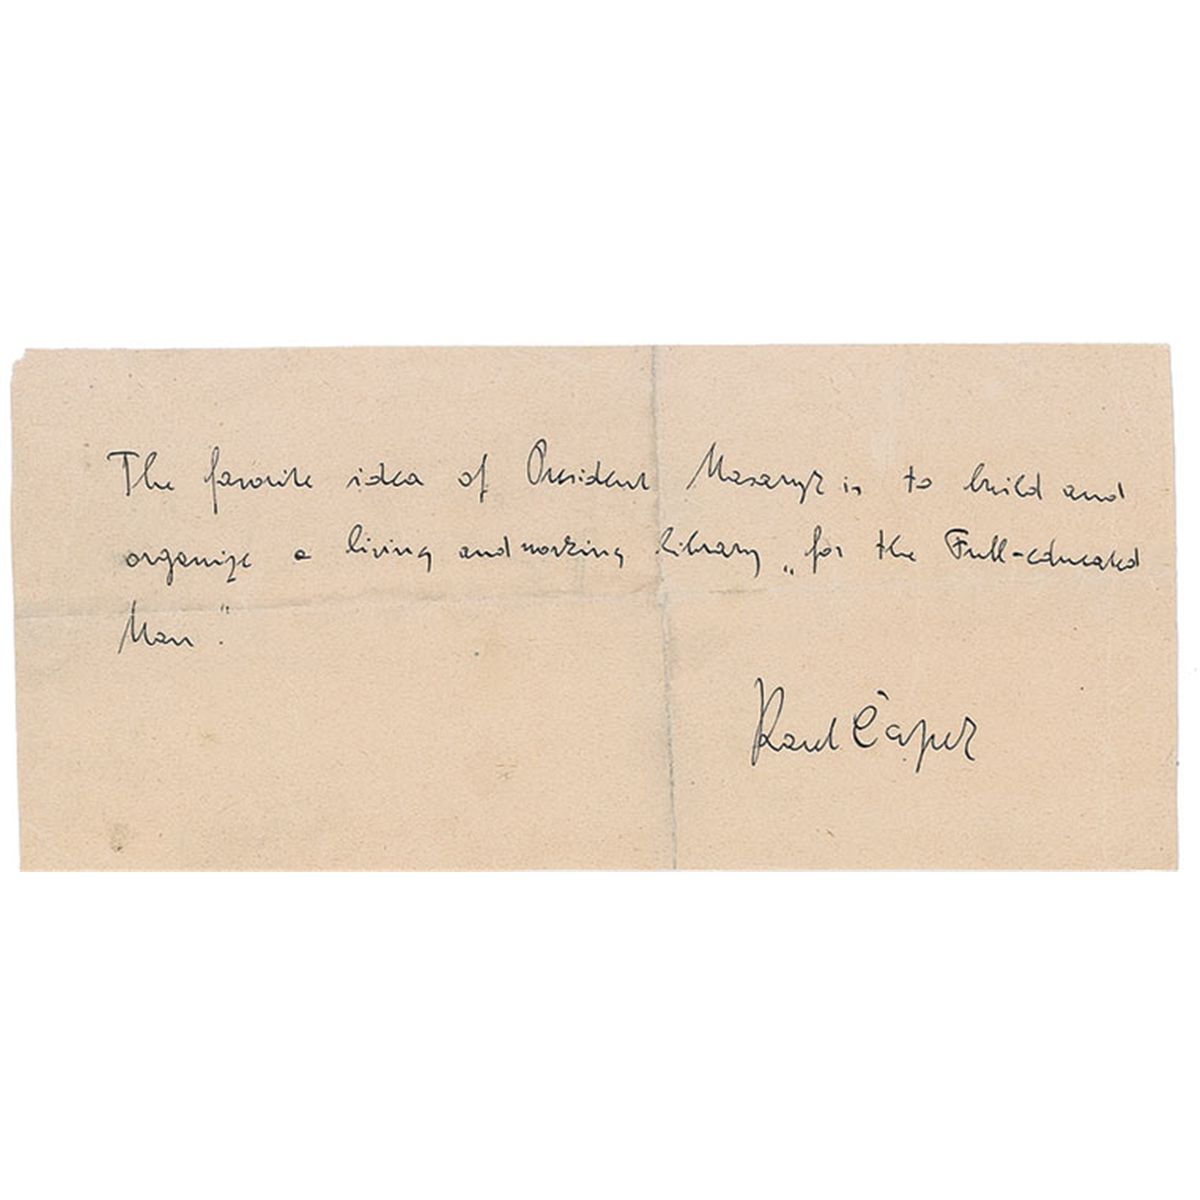 The favorite idea of President Masaryk is to build and
organize a living and working library „for the Full-educated
Man".
Karel Čapek